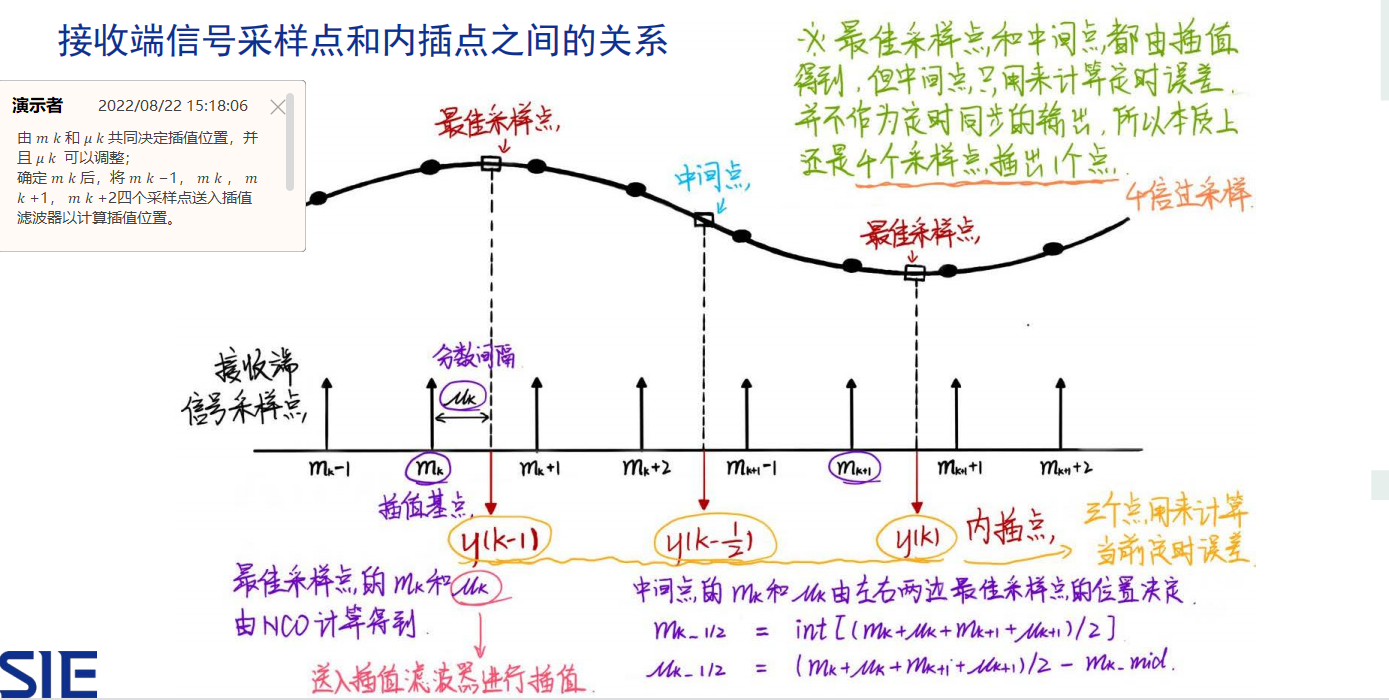 接收端信号采样点和内插点之间的关系
演示者 2022/08/22 15:18:06
由 m k 和 μ k 共同决定插值位置，并
且 μ k 可以调整；
确定 m k 后，将 m k −1， m k ， m
k +1， m k +2四个采样点送入插值
滤波器以计算插值位置。
※ 最佳采样点和中间点都由插值
得到，但中间点只用来计算定时误差.
并不作为定时同步的输出，所以本质上
还是4个采样点插出1个点.
4倍过采样.
最佳采样点
中间点
最佳采样点
接收端
信号采样点
分数间隔
μk
mk-1 mk mk+1 mk+2 mk+1-1 mk+1 mk+1+1 mk+1+2
插值基点
y(k-1) y(k-1/2) y(k) 内插点
三个点用来计算
当前定时误差.
最佳采样点的mk和μk
由NCO计算得到.
送入插值滤波器进行插值.
中间点的mk和μk由左右两边最佳采样点的位置决定.
mk_1/2 = int[(mk+μk+mk+1+μk+1)/2]
μk_1/2 = (mk+μk+mk+1+μk+1)/2 - mk_mid.
SIE